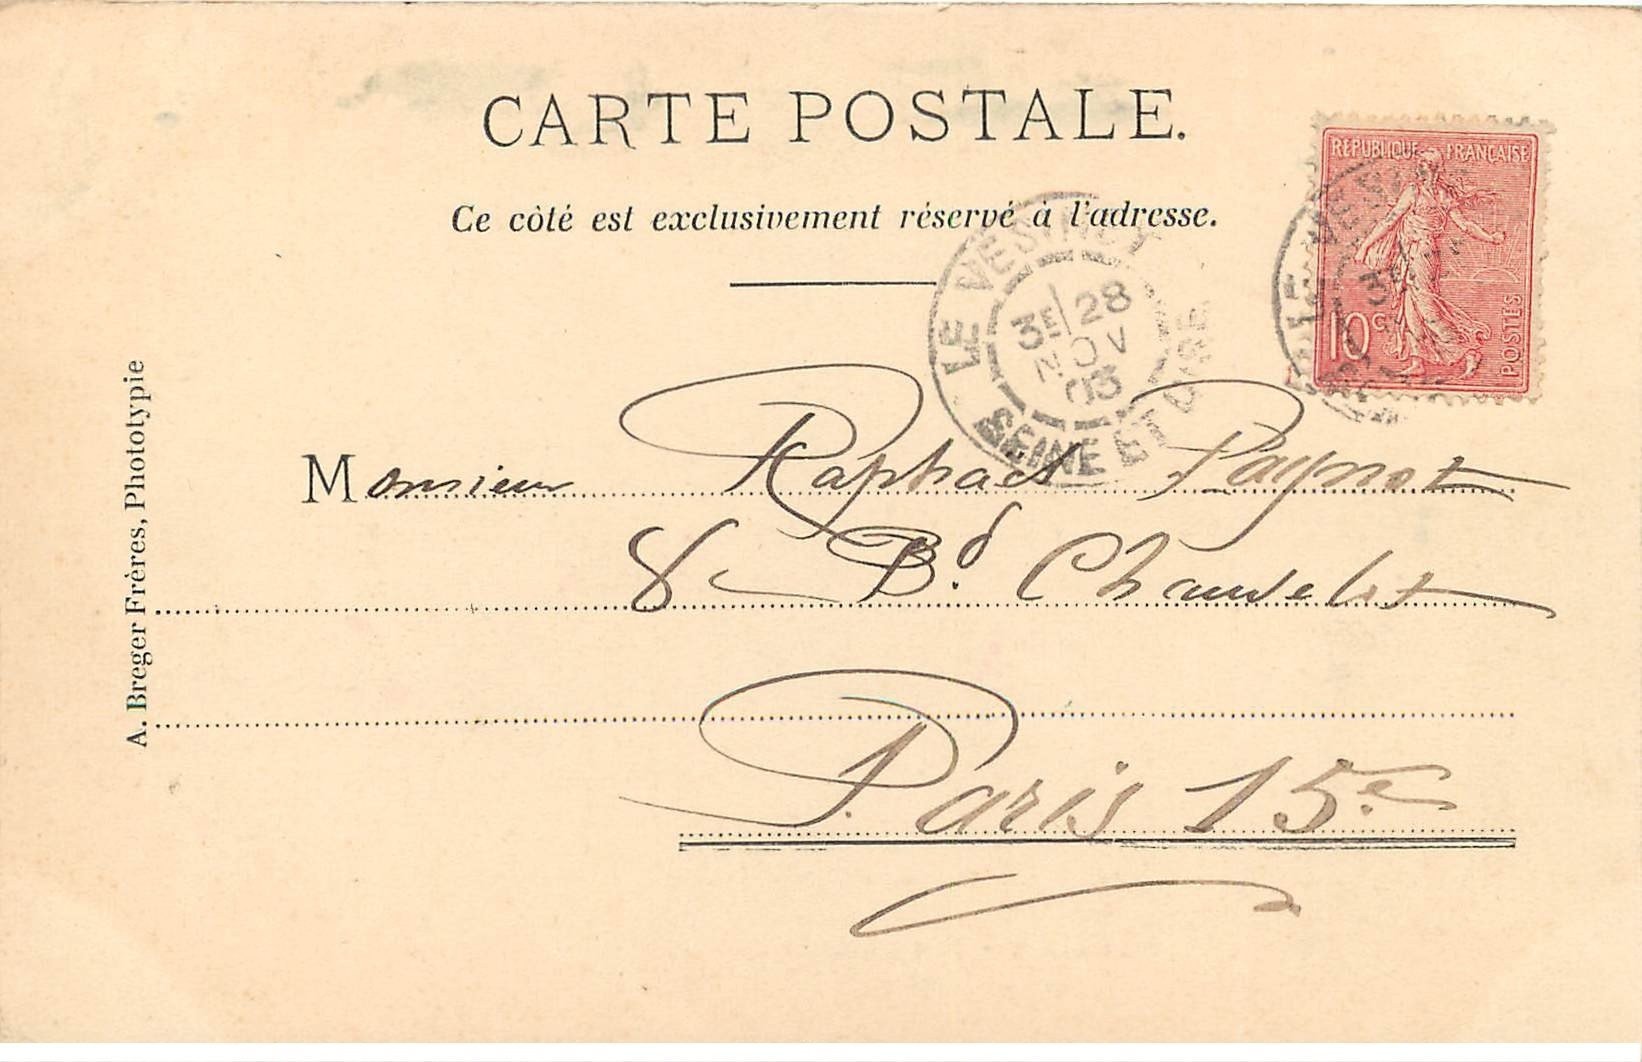 CARTE POSTALE.
Ce côté est exclusivement réservé à l'adresse.
RÉPUBLIQUE FRANÇAISE
10 c.
POSTES
LE VESINET
3E 28
NOV
03
SEINE ET OISE
LE VESI
3E
Monsieur Raphael Paynot
8 Bd. Chauvelot
Paris 15e
A. Breger Frères, Phototypie